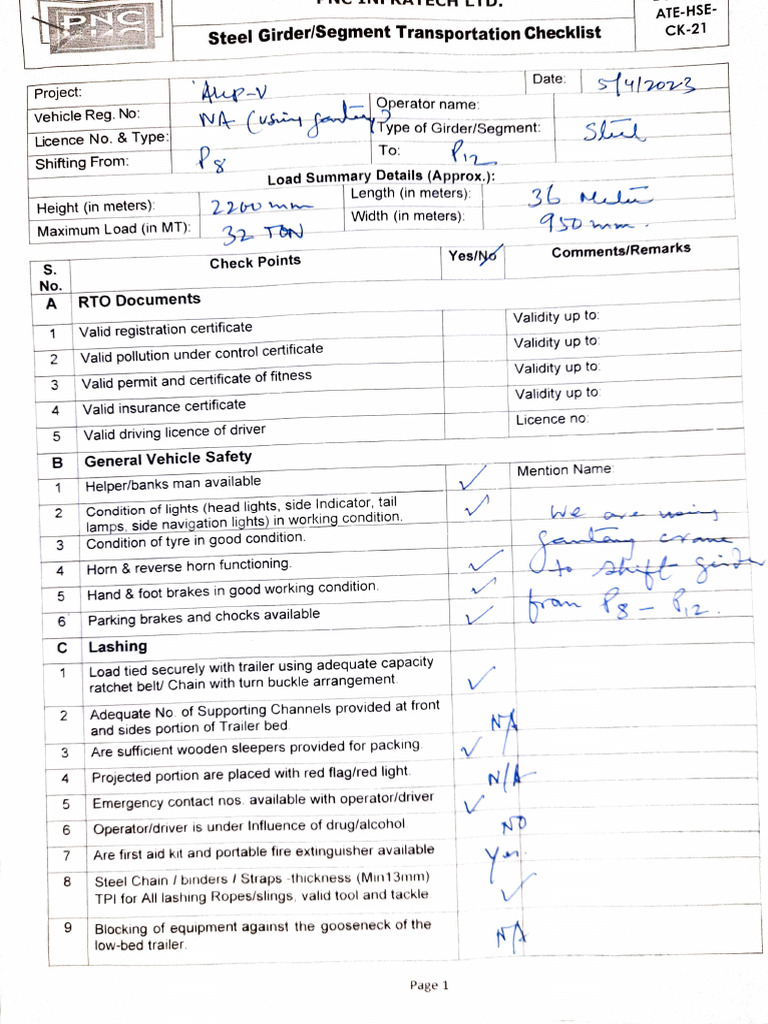 PNC INFRATECH LTD.
PNC
Steel Girder/Segment Transportation Checklist
ATE-HSE-
CK-21
Project: AHP-V Date: 5/4/2023
Vehicle Reg. No: NA (using gantry) Operator name:
Licence No. & Type: Type of Girder/Segment: Steel
Shifting From: P8 To: P12
Load Summary Details (Approx.):
Height (in meters): 2200mm Length (in meters): 36 Meter
Maximum Load (in MT): 32 TON Width (in meters): 950 mm.
S. No. Check Points Yes/No Comments/Remarks
A RTO Documents
1 Valid registration certificate Validity up to:
2 Valid pollution under control certificate Validity up to:
3 Valid permit and certificate of fitness Validity up to:
4 Valid insurance certificate Validity up to:
5 Valid driving licence of driver Licence no:
B General Vehicle Safety
1 Helper/banks man available ✓ Mention Name:
2 Condition of lights (head lights, side Indicator, tail ✓ We are using
lamps, side navigation lights) in working condition.
3 Condition of tyre in good condition. gantry crane
4 Horn & reverse horn functioning. ✓ to shift girder
5 Hand & foot brakes in good working condition. ✓ from P8 – P12.
6 Parking brakes and chocks available ✓
C Lashing
1 Load tied securely with trailer using adequate capacity ✓
ratchet belt/ Chain with turn buckle arrangement.
2 Adequate No. of Supporting Channels provided at front N/A
and sides portion of Trailer bed.
3 Are sufficient wooden sleepers provided for packing. ✓
4 Projected portion are placed with red flag/red light. N/A
5 Emergency contact nos. available with operator/driver ✓
6 Operator/driver is under Influence of drug/alcohol NO
7 Are first aid kit and portable fire extinguisher available Yes.
8 Steel Chain / binders / Straps -thickness (Min13mm) ✓
TPI for All lashing Ropes/slings, valid tool and tackle.
9 Blocking of equipment against the gooseneck of the N/A
low-bed trailer.
Page 1